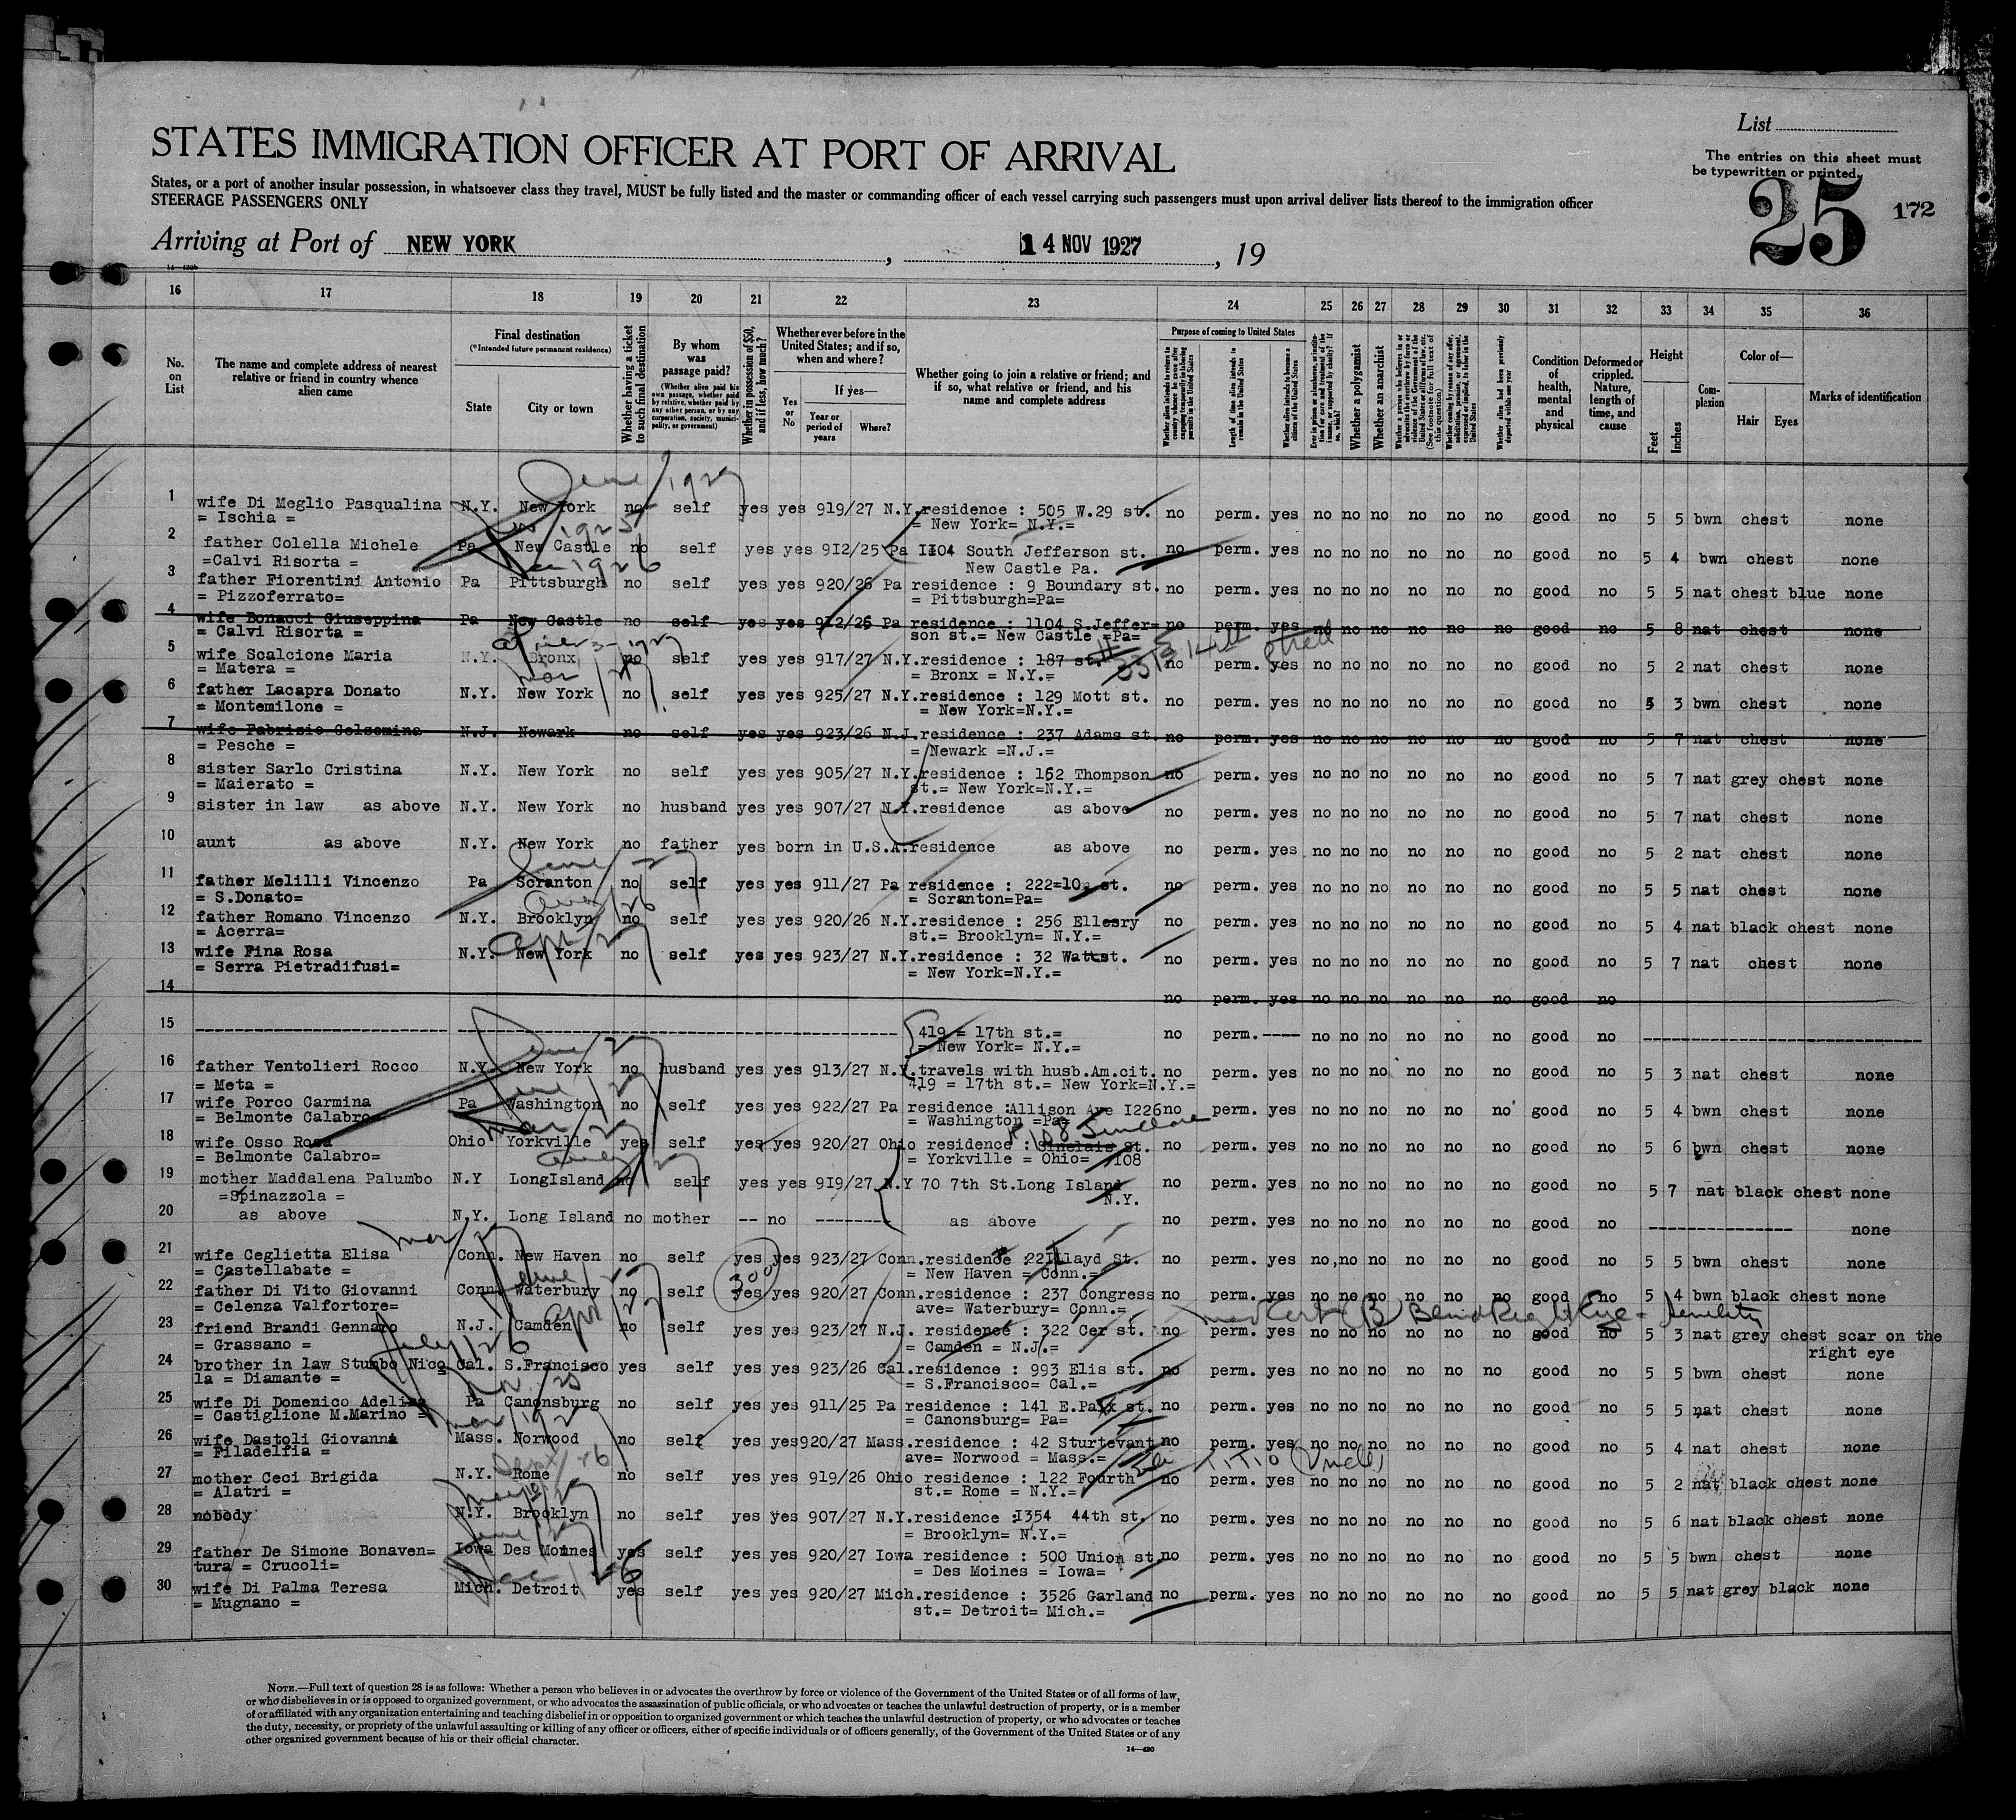 List
STATES IMMIGRATION OFFICER AT PORT OF ARRIVAL
The entries on this sheet must
be typewritten or printed.
States, or a port of another insular possession, in whatsoever class they travel, MUST be fully listed and the master or commanding officer of each vessel carrying such passengers must upon arrival deliver lists thereof to the immigration officer
STEERAGE PASSENGERS ONLY
25 172
Arriving at Port of NEW YORK, 14 NOV 1927, 19
16 17 18 19 20 21 22 23 24 25 26 27 28 29 30 31 32 33 34 35 36
No. on List
The name and complete address of nearest relative or friend in country whence alien came
Final destination
(*Intended future permanent residence)
State
City or town
Whether having a ticket to such final destination
By whom was passage paid?
(Whether alien paid his own passage, whether paid by relative, whether paid by any other person, or by any corporation, society, municipality, or government)
Whether in possession of $50, and if less, how much?
Whether ever before in the United States; and if so, when and where?
Yes or No
If yes—
Year or period of years
Where?
Whether going to join a relative or friend; and if so, what relative or friend, and his name and complete address
Purpose of coming to United States
Whether alien intends to return to country whence he came after engaging temporarily in laboring pursuits in the United States
Length of time alien intends to remain in the United States
Whether alien intends to become a citizen of the United States
Whether a polygamist
Whether an anarchist
Condition of health, mental and physical
Deformed or crippled. Nature, length of time, and cause
Height
Feet
Inches
Complexion
Color of—
Hair
Eyes
Marks of identification
June/1927
1 wife Di Meglio Pasqualina N.Y. New York no self yes yes 919/27 N.Y. residence : 505 W.29 st. no perm. yes no no no no no no good no 5 5 bwn chest none
= Ischia = = New York= N.Y.=
1925
2 father Colella Michele Pa New Castle no self yes yes 912/25 Pa 1104 South Jefferson st. no perm. yes no no no no no no good no 5 4 bwn chest none
=Calvi Risorta = New Castle Pa.
1926
3 father Fiorentini Antonio Pa Pittsburgh no self yes yes 920/26 Pa residence : 9 Boundary st. no perm. yes no no no no no no good no 5 5 nat chest blue none
= Pizzoferrato= = Pittsburgh=Pa=
4 wife Bonacci Giuseppina Pa New Castle no self yes yes 912/26 Pa residence : 1104 S.Jeffer= no perm. yes no no no no no no good no 5 8 nat chest none
= Calvi Risorta = son st.= New Castle =Pa=
5 wife Scalcione Maria N.Y. Bronx no self yes yes 917/27 N.Y. residence : 187 st. no perm. yes no no no no no no good no 5 2 nat chest none
= Matera = = Bronx = N.Y.=
6 father Lacapra Donato N.Y. New York no self yes yes 925/27 N.Y. residence : 129 Mott st. no perm. yes no no no no no no good no 5 3 bwn chest none
= Montemilone = = New York=N.Y.=
7 wife Fabrizio Colsomina N.J. Newark no self yes yes 923/26 N.J. residence : 237 Adams st. no perm. yes no no no no no no good no 5 7 nat chest none
= Pesche = = Newark =N.J.=
8 sister Sarlo Cristina N.Y. New York no self yes yes 905/27 N.Y. residence : 162 Thompson no perm. yes no no no no no no good no 5 7 nat grey chest none
= Maierato = st.= New York=N.Y.=
9 sister in law as above N.Y. New York no husband yes yes 907/27 N.Y. residence as above no perm. yes no no no no no no good no 5 7 nat chest none
10 aunt as above N.Y. New York no father yes born in U.S.A. residence as above no perm. yes no no no no no no good no 5 2 nat chest none
June/27
11 father Melilli Vincenzo Pa Scranton no self yes yes 911/27 Pa residence : 222=10 st. no perm. yes no no no no no no good no 5 5 nat chest none
= S.Donato= = Scranton=Pa=
12 father Romano Vincenzo N.Y. Brooklyn no self yes yes 920/26 N.Y. residence : 256 Ellesry no perm. yes no no no no no no good no 5 4 nat black chest none
= Acerra= st.= Brooklyn= N.Y.=
Apr/27
13 wife Fina Rosa N.Y. New York no self yes yes 923/27 N.Y. residence : 32 Wattst. no perm. yes no no no no no no good no 5 7 nat chest none
= Serra Pietradifusi= = New York=N.Y.=
14 no perm. yes no no no no no no good no
15 419 = 17th st.= no perm. ---- no no no no no no good no
= New York= N.Y.=
June/27
16 father Ventolieri Rocco N.Y. New York no husband yes yes 913/27 N.Y. travels with husb.Am.cit. no perm. yes no no no no no no good no 5 3 nat chest none
= Meta = 419 = 17th st.= New York=N.Y.=
June/27
17 wife Porco Carmina Pa Washington no self yes yes 922/27 Pa residence :Allison Ave 1226 no perm. yes no no no no no no good no 5 4 bwn chest none
= Belmonte Calabro= = Washington =Pa=
Mar/27 108 Sinclare
18 wife Osso Rosa Ohio Yorkville yes self yes yes 920/27 Ohio residence : Sinclais St. no perm. yes no no no no no no good no 5 6 bwn chest none
= Belmonte Calabro= = Yorkville = Ohio= 108
19 mother Maddalena Palumbo N.Y LongIsland no self yes yes 919/27 N.Y 70 7th St.Long Island no perm. yes no no no no no no good no 5 7 nat black chest none
=Spinazzola = N.Y.
20 as above N.Y. Long Island no mother -- no -------- as above no perm. yes no no no no no no good no --------------- none
Mar/27
21 wife Ceglietta Elisa Conn. New Haven no self yes yes 923/27 Conn. residence : 221 Llayd St. no perm. yes no no no no no no good no 5 5 bwn chest none
= Castellabate = = New Haven = Conn.=
June/27 300
22 father Di Vito Giovanni Conn. Waterbury no self yes yes 920/27 Conn. residence : 237 Congress no perm. yes no no no no no no good no 5 4 bwn black chest none
= Celenza Valfortore= ave= Waterbury= Conn.=
Apr/27 med Cert (B) Blind Right Eye - senility
23 friend Brandi Gennaro N.J. Camden no self yes yes 923/27 N.J. residence : 322 Cer st. no perm. yes no no no no no no good no 5 3 nat grey chest scar on the
= Grassano = = Camden = N.J.= right eye
July/26
24 brother in law Stumbo Nico Cal. S.Francisco yes self yes yes 923/26 Cal. residence : 993 Elis st. no perm. yes no no no no no no good no 5 5 bwn chest none
la = Diamante = = S.Francisco= Cal.=
Nov. 25
25 wife Di Domenico Adelina Pa Canonsburg no self yes yes 911/25 Pa residence : 141 E.Park st. no perm. yes no no no no no no good no 5 5 nat chest none
= Castiglione M.Marino = = Canonsburg= Pa=
Mar/1927
26 wife Dastoli Giovanna Mass. Norwood no self yes yes 920/27 Mass. residence : 42 Sturtevant no perm. yes no no no no no no good no 5 4 nat chest none
= Filadelfia = ave= Norwood = Mass.=
Sept/26 (Uncle)
27 mother Ceci Brigida N.Y. Rome no self yes yes 919/26 Ohio residence : 122 Fourth no perm. yes no no no no no no good no 5 2 nat black chest none
= Alatri = st.= Rome = N.Y.=
28 nobody N.Y. Brooklyn no self yes yes 907/27 N.Y. residence :1354 44th st. no perm. yes no no no no no no good no 5 6 nat black chest none
= Brooklyn= N.Y.=
June/27
29 father De Simone Bonaven= Iowa Des Moines yes self yes yes 920/27 Iowa residence : 500 Union st. no perm. yes no no no no no no good no 5 5 bwn chest none
tura = Crucoli= = Des Moines = Iowa=
Dec/26
30 wife Di Palma Teresa Mich. Detroit yes self yes yes 920/27 Mich. residence : 3526 Garland no perm. yes no no no no no no good no 5 5 nat grey black none
= Mugnano = st.= Detroit= Mich.=
NOTE.—Full text of question 28 is as follows: Whether a person who believes in or advocates the overthrow by force or violence of the Government of the United States or of all forms of law,
or who disbelieves in or is opposed to organized government, or who advocates the assassination of public officials, or who advocates or teaches the unlawful destruction of property, or is a member
of or affiliated with any organization entertaining and teaching disbelief in or opposition to organized government or which teaches the unlawful destruction of property, or who advocates or teaches
the duty, necessity, or propriety of the unlawful assaulting or killing of any officer or officers, either of specific individuals or of officers generally, of the Government of the United States or of any
other organized government because of his or their official character.
14—430